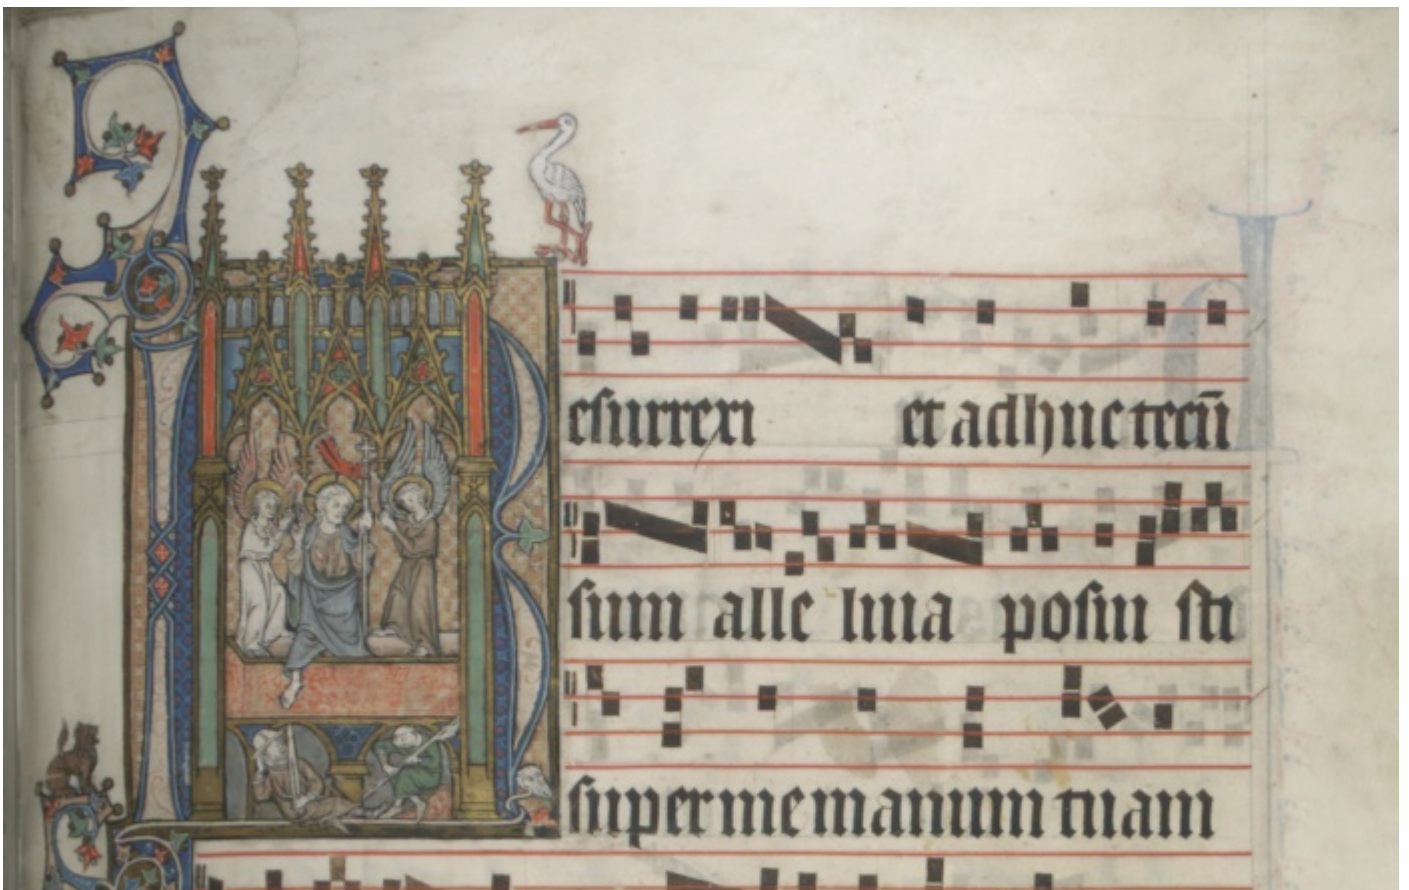 Resurrexi et adhuc tecū
sum alle luia posui sti
super me manum tuam